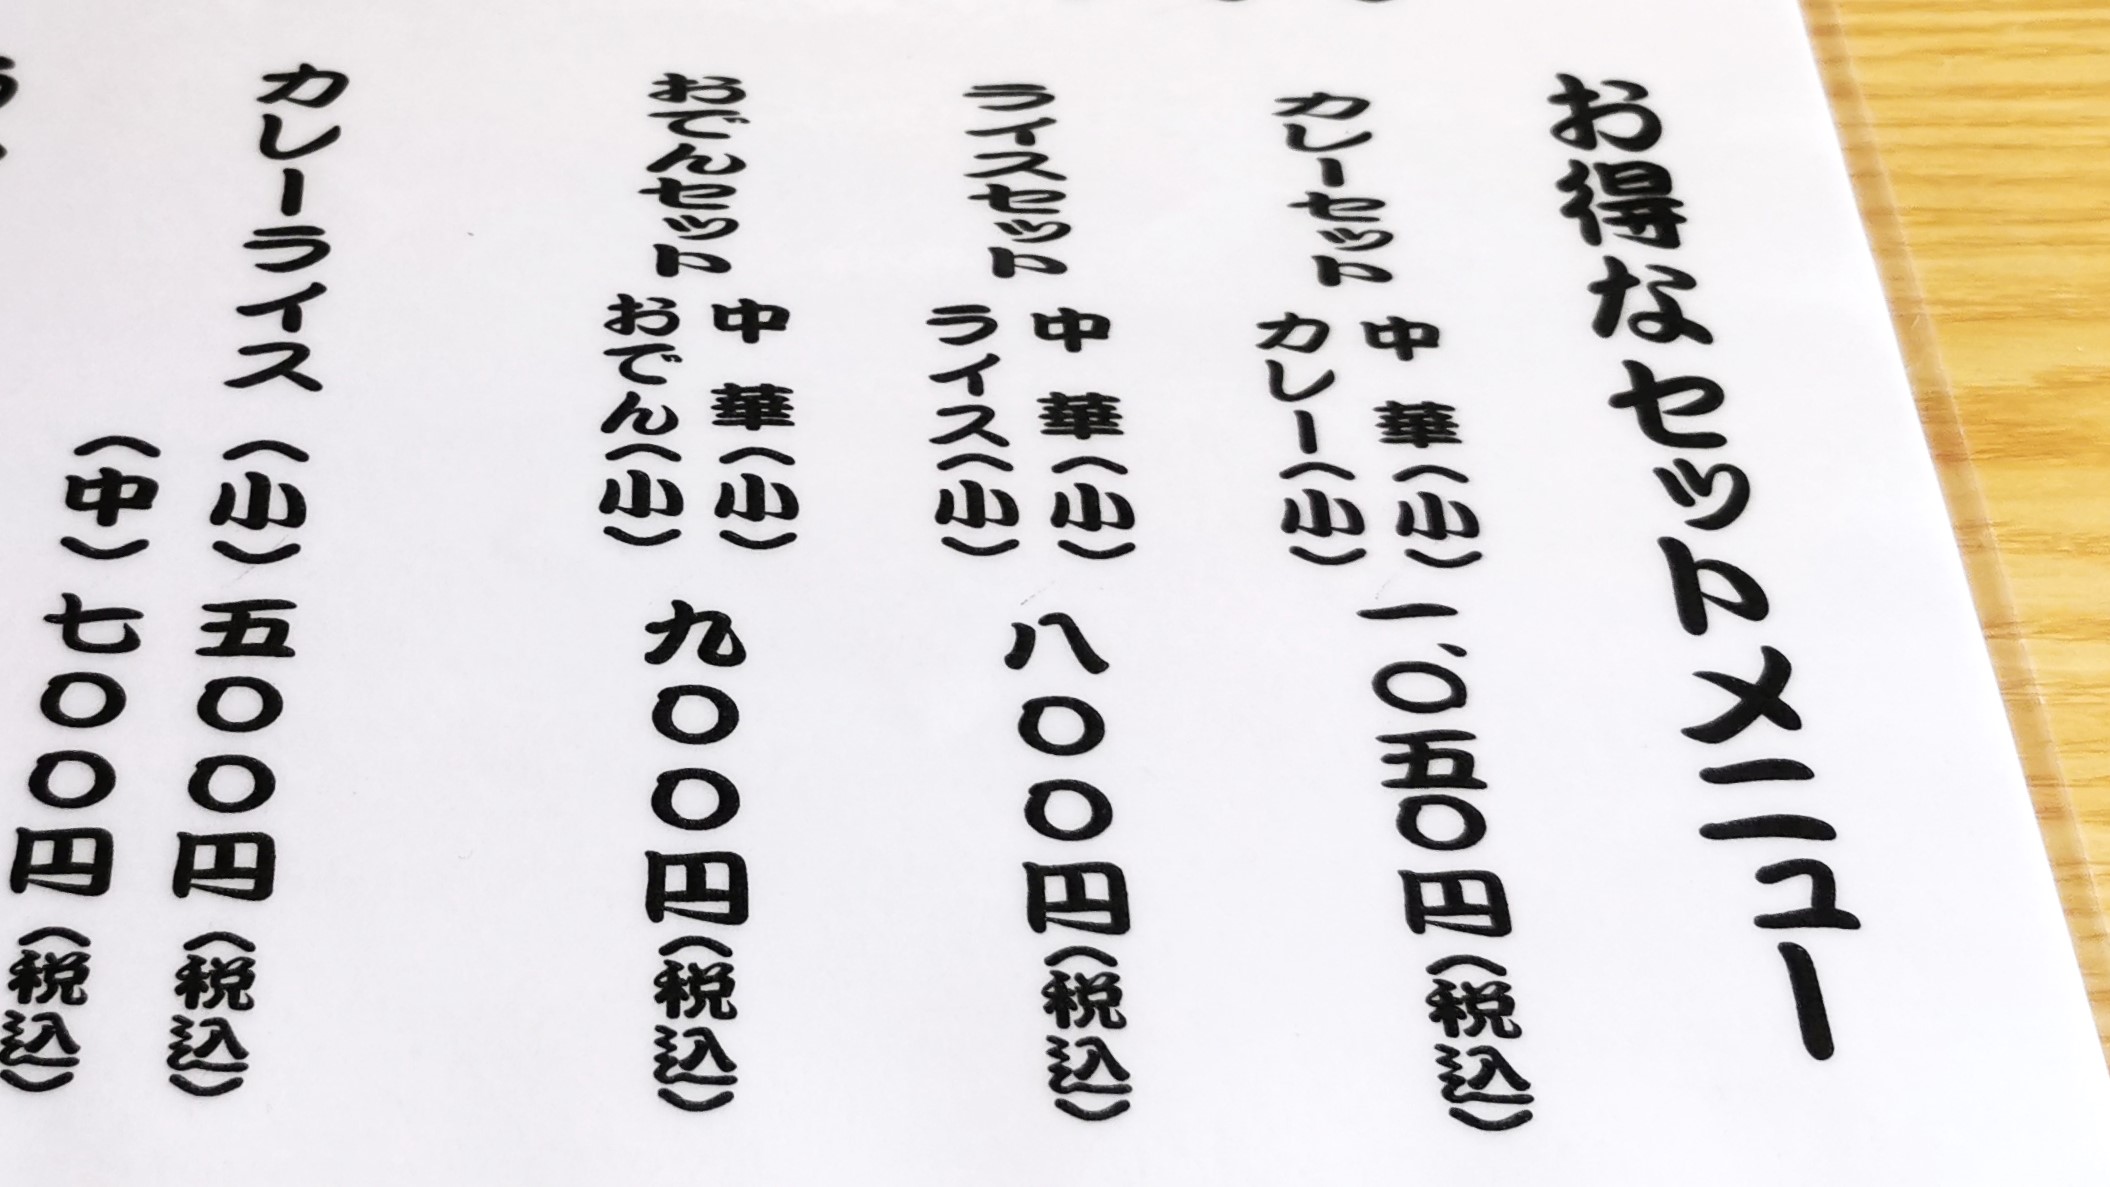 お得なセットメニュー
カレーセット
中華(小)
カレー(小)
一、〇五〇円(税込)
ライスセット
中華(小)
ライス(小)
八〇〇円(税込)
おでんセット
中華(小)
おでん(小)
九〇〇円(税込)
カレーライス(小)五〇〇円(税込)
(中)七〇〇円(税込)